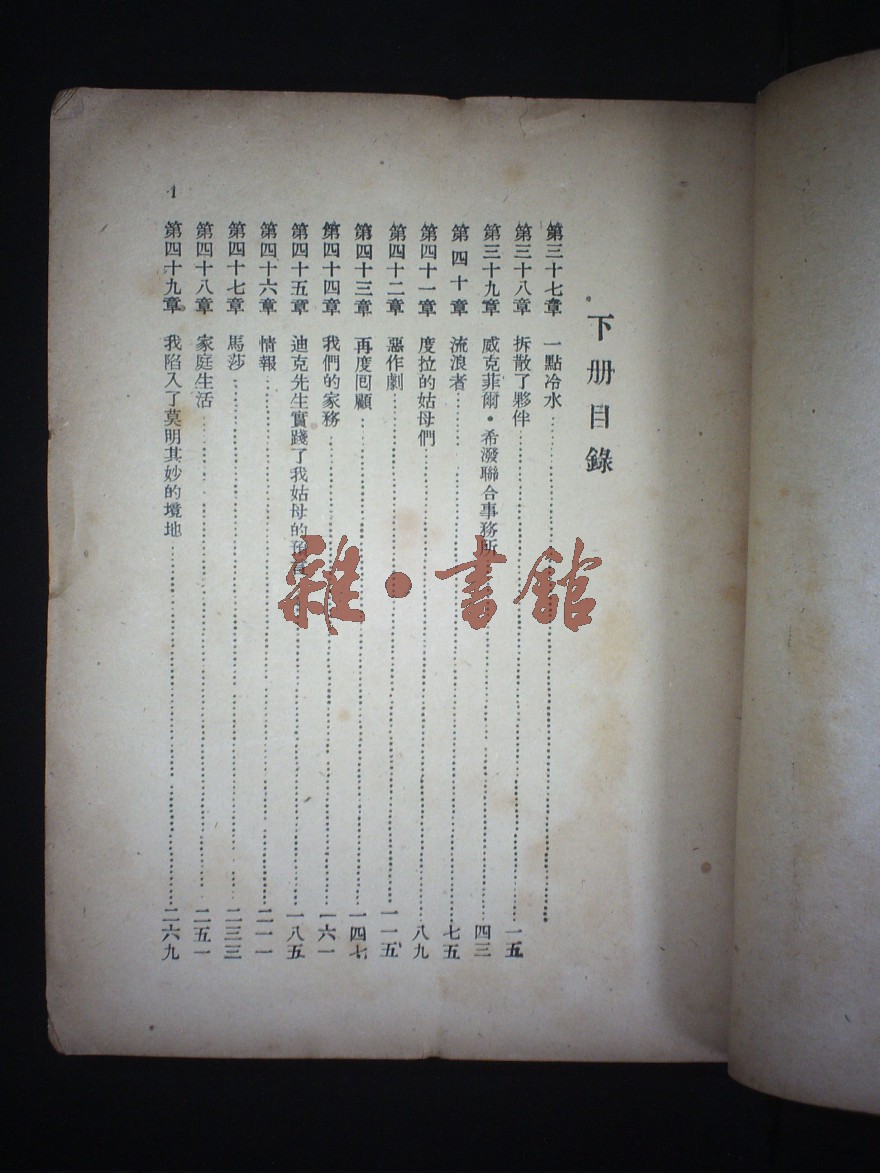 下册目錄
第三十七章 一點冷水
第三十八章 拆散了夥伴 一五
第三十九章 威克菲爾·希潑聯合事務所 四三
第四十章 流浪者 七五
第四十一章 度拉的姑母們 八九
第四十二章 惡作劇 一一五
第四十三章 再度囘顧 一四七
第四十四章 我們的家務 一六一
第四十五章 迪克先生實踐了我姑母的預 一八五
第四十六章 情報 二一一
第四十七章 馬莎 二三三
第四十八章 家庭生活 二五一
第四十九章 我陷入了莫明其妙的境地 二六九
1
雜·書館